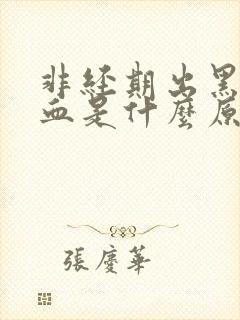 非经期出黑
血是什麼原
張慶華